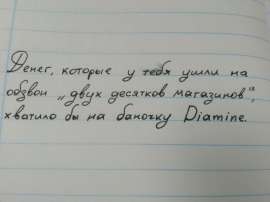 Денег, которые у тебя ушли на
обзвон „двух десятков магазинов",
хватило бы на баночку Diamine.